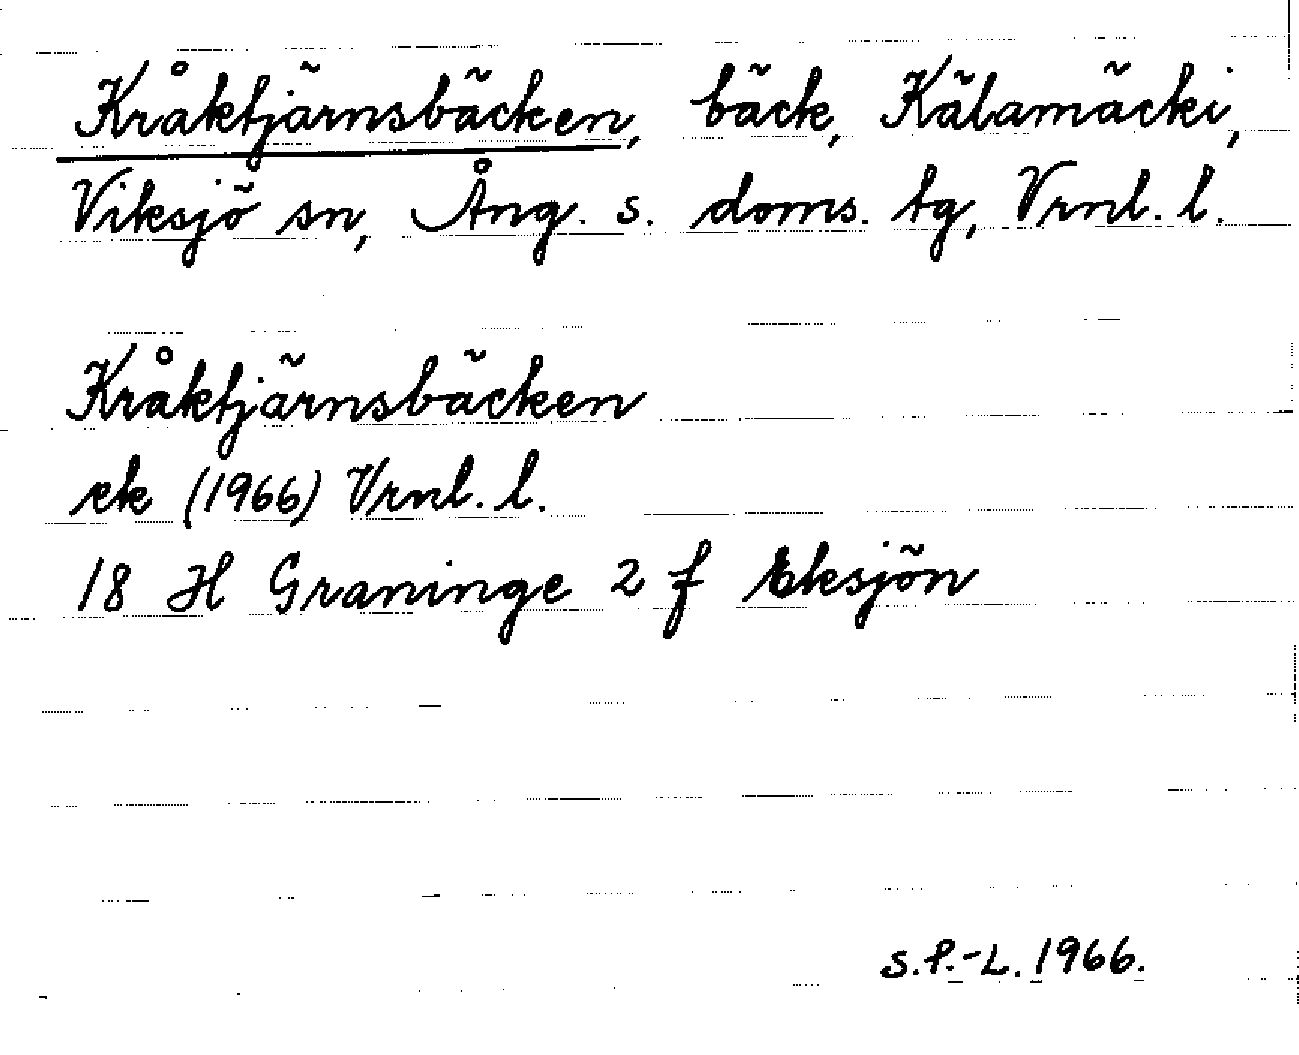 Kråktjärnsbäcken, bäck, Kälamäcki,
Viksjö sn, Ång. s. doms. tg, Vrnl. l.
Kråktjärnsbäcken
ek (1966) Vrnl. l.
18 H Graninge 2 f Eksjön
S.P.-L. 1966.